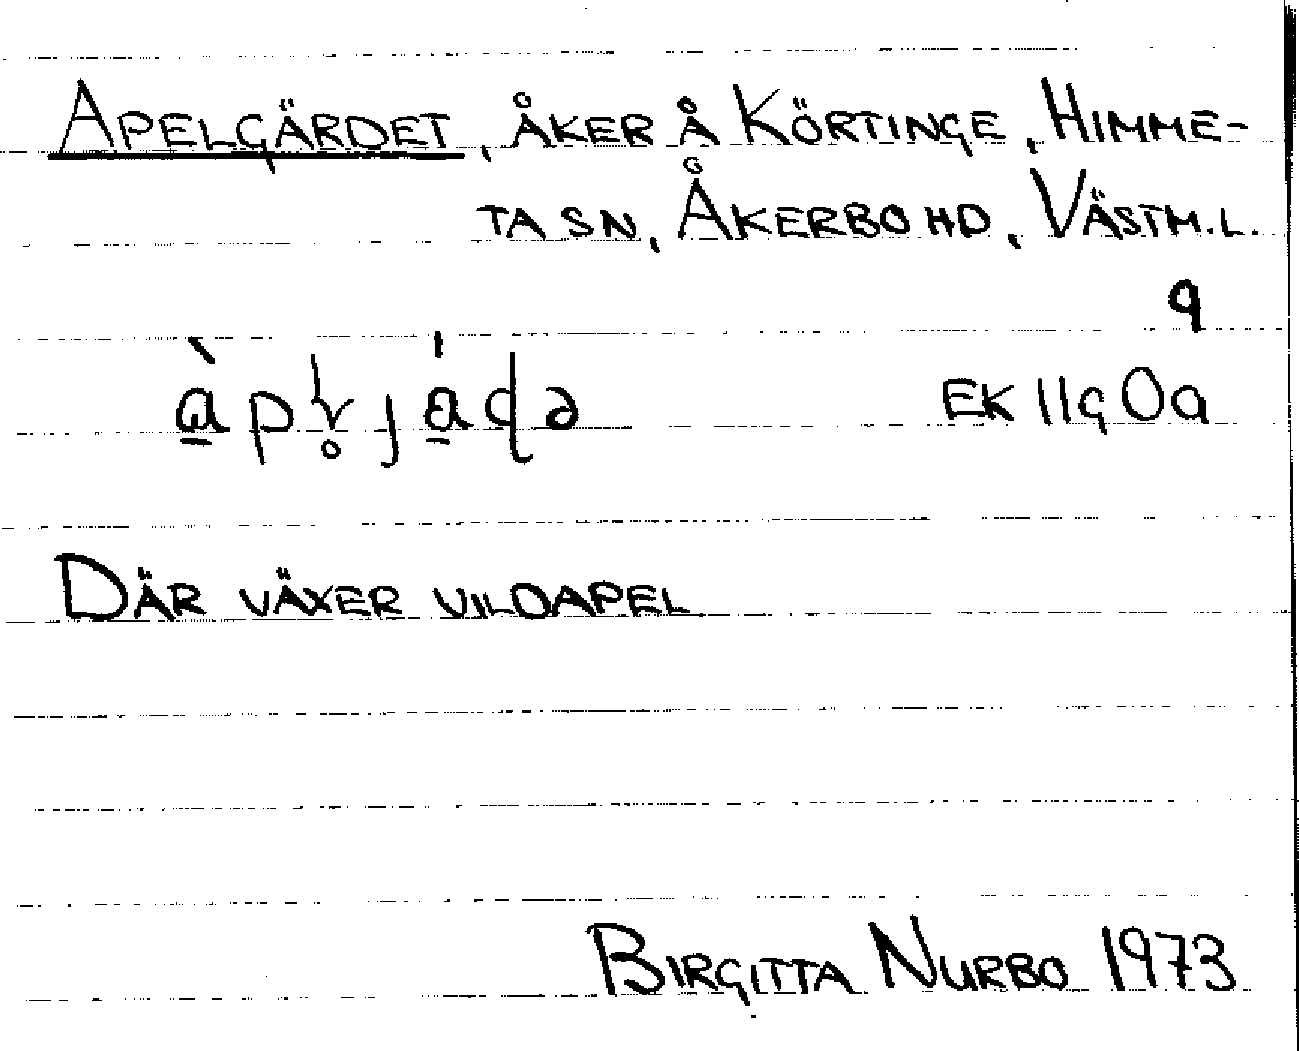 APELGÄRDET, ÅKER Å KÖRTINGE, HIMME-
TA SN, ÅKERBO HD, VÄSTM.L.
9
EK 11g 0a
DÄR VÄXER VILDAPEL
BIRGITTA NURBO 1973